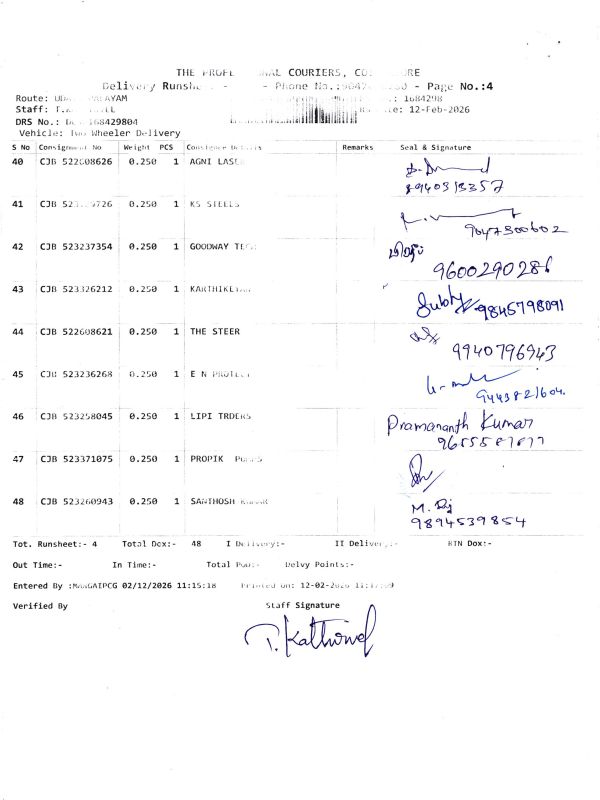 THE COURIERS,
Delivery - Phone No.: - Page No.:4
Route:
: 1684298
Staff:
12-Feb-2026
DRS No.: 168429804
Vehicle: Two Wheeler Delivery
S No Consignment No Weight PCS Consignee Details Remarks Seal & Signature
40 CJB 522608626 0.250 1 AGNI LASER
8940313357
41 CJB 0.250 1 KS STEELS
9047300602
42 CJB 523237354 0.250 1 GOODWAY
9600290286
43 CJB 523326212 0.250 1
9845798091
44 CJB 522608621 0.250 1 THE STEER
9940796943
45 CJB 523236268 0.250 1 E N
9443821604.
46 CJB 523258045 0.250 1 LIPI TRDERS
Pramananth Kumar
47 CJB 523371075 0.250 1 PROPIK
48 CJB 523260943 0.250 1 SANTHOSH
M. Raj
9894539854
Tot. Runsheet:- 4 Total Dox:- 48 I Delivery:- II Delivery:- RTN Dox:-
Out Time:- In Time:- Total Pod:- Delvy Points:-
Entered By :MANGAIPCG 02/12/2026 11:15:18 Printed on: 12-02-2026
Verified By Staff Signature